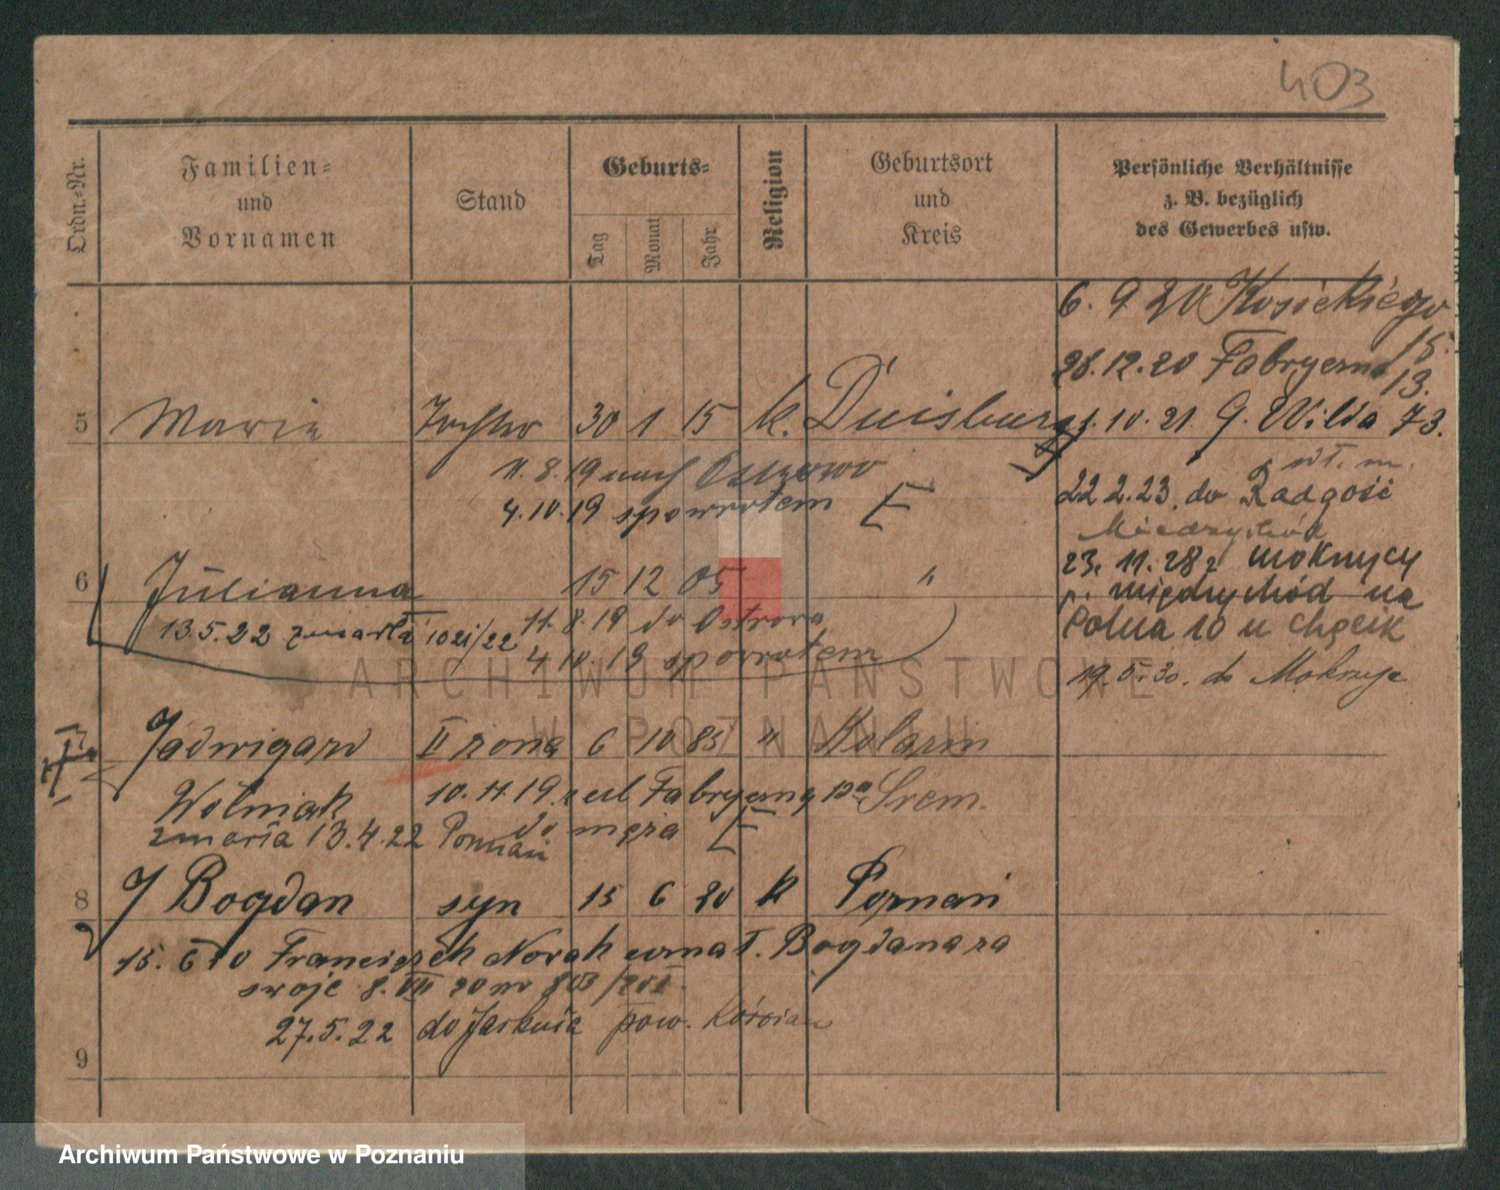 403
Ordn.-Nr.
Familien-
und
Vornamen
Stand
Geburts-
Tag
Monat
Jahr
Religion
Geburtsort
und
Kreis
Persönliche Verhältnisse
z. B. bezüglich
des Gewerbes usw.
6. 9 20 Kosickiego
15.
28.12.20 Fabryczna
13.
5 Marie Tochter 30 1 15 k. Duisburg
1. 10. 21. G. Wilda 73.
11. 8. 19 nach Ostrowo
4. 10. 19 spowrotem
22 2. 23. do Radgość
Międzychód
6 Julianna 15 12 05 "
23. 11. 28 r Mokrzycy
p. międzychód na
13. 5. 22 zmarła 1021/22 11. 8. 19 do Ostrowa
Polna 10 u
4. 10. 19 spowrotem
19. 5. 30. do Mokrzyc
ARCHIWUM PAŃSTWOWE
W POZNANIU
7 Jadwiga II żona 6 10 85 "
Woźniak 10. 11. 19. z ul Fabrycznej 13a Śrem.
zmarła 13. 4. 22 Poznań do męża
8 Bogdan syn 15 6 20 k Poznań
15. 6 20 Franciszek Nowak uznał T. Bogdana za
swoje 8. VII 20
27. 5. 22 do pow.
9
Archiwum Państwowe w Poznaniu